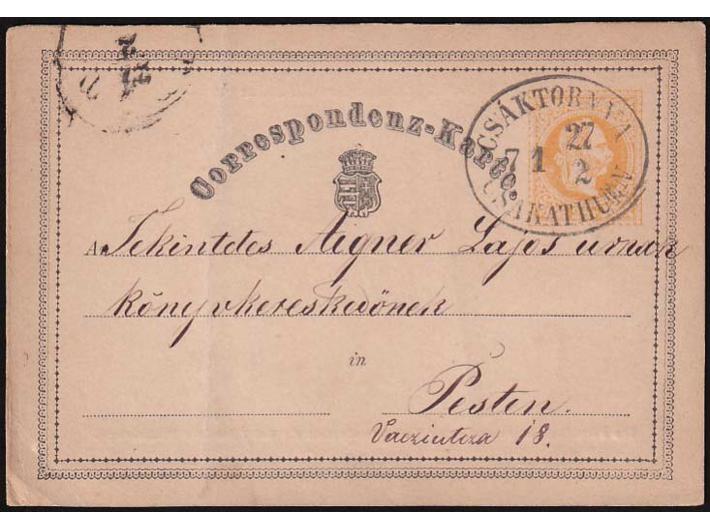 Correspondenz-Karte.
CSÁKTORNYA
27
7 1
2
CSAKATHURN
An Tekintetes Aigner Lajos urnak
könyvkereskedőnek
in
Pesten.
Vacziutcza 18.